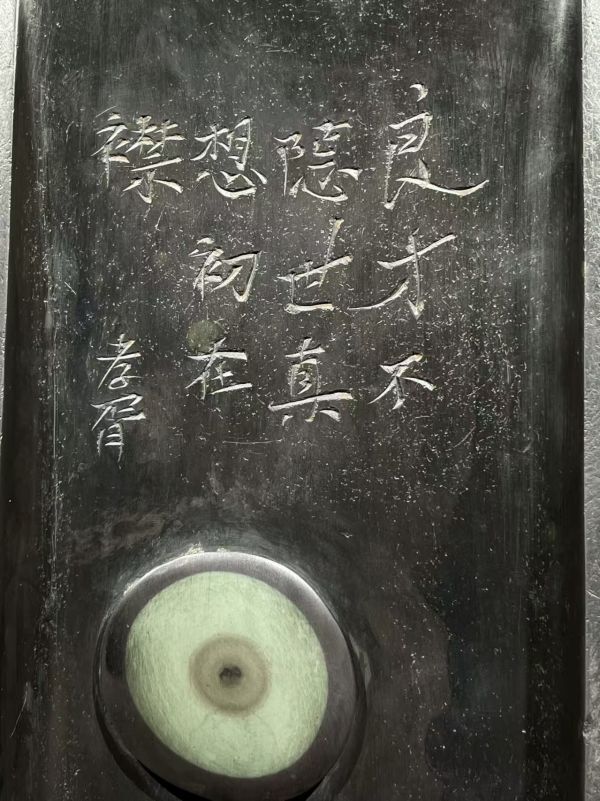 良才不
隱世真
想初在
襟
孝胥